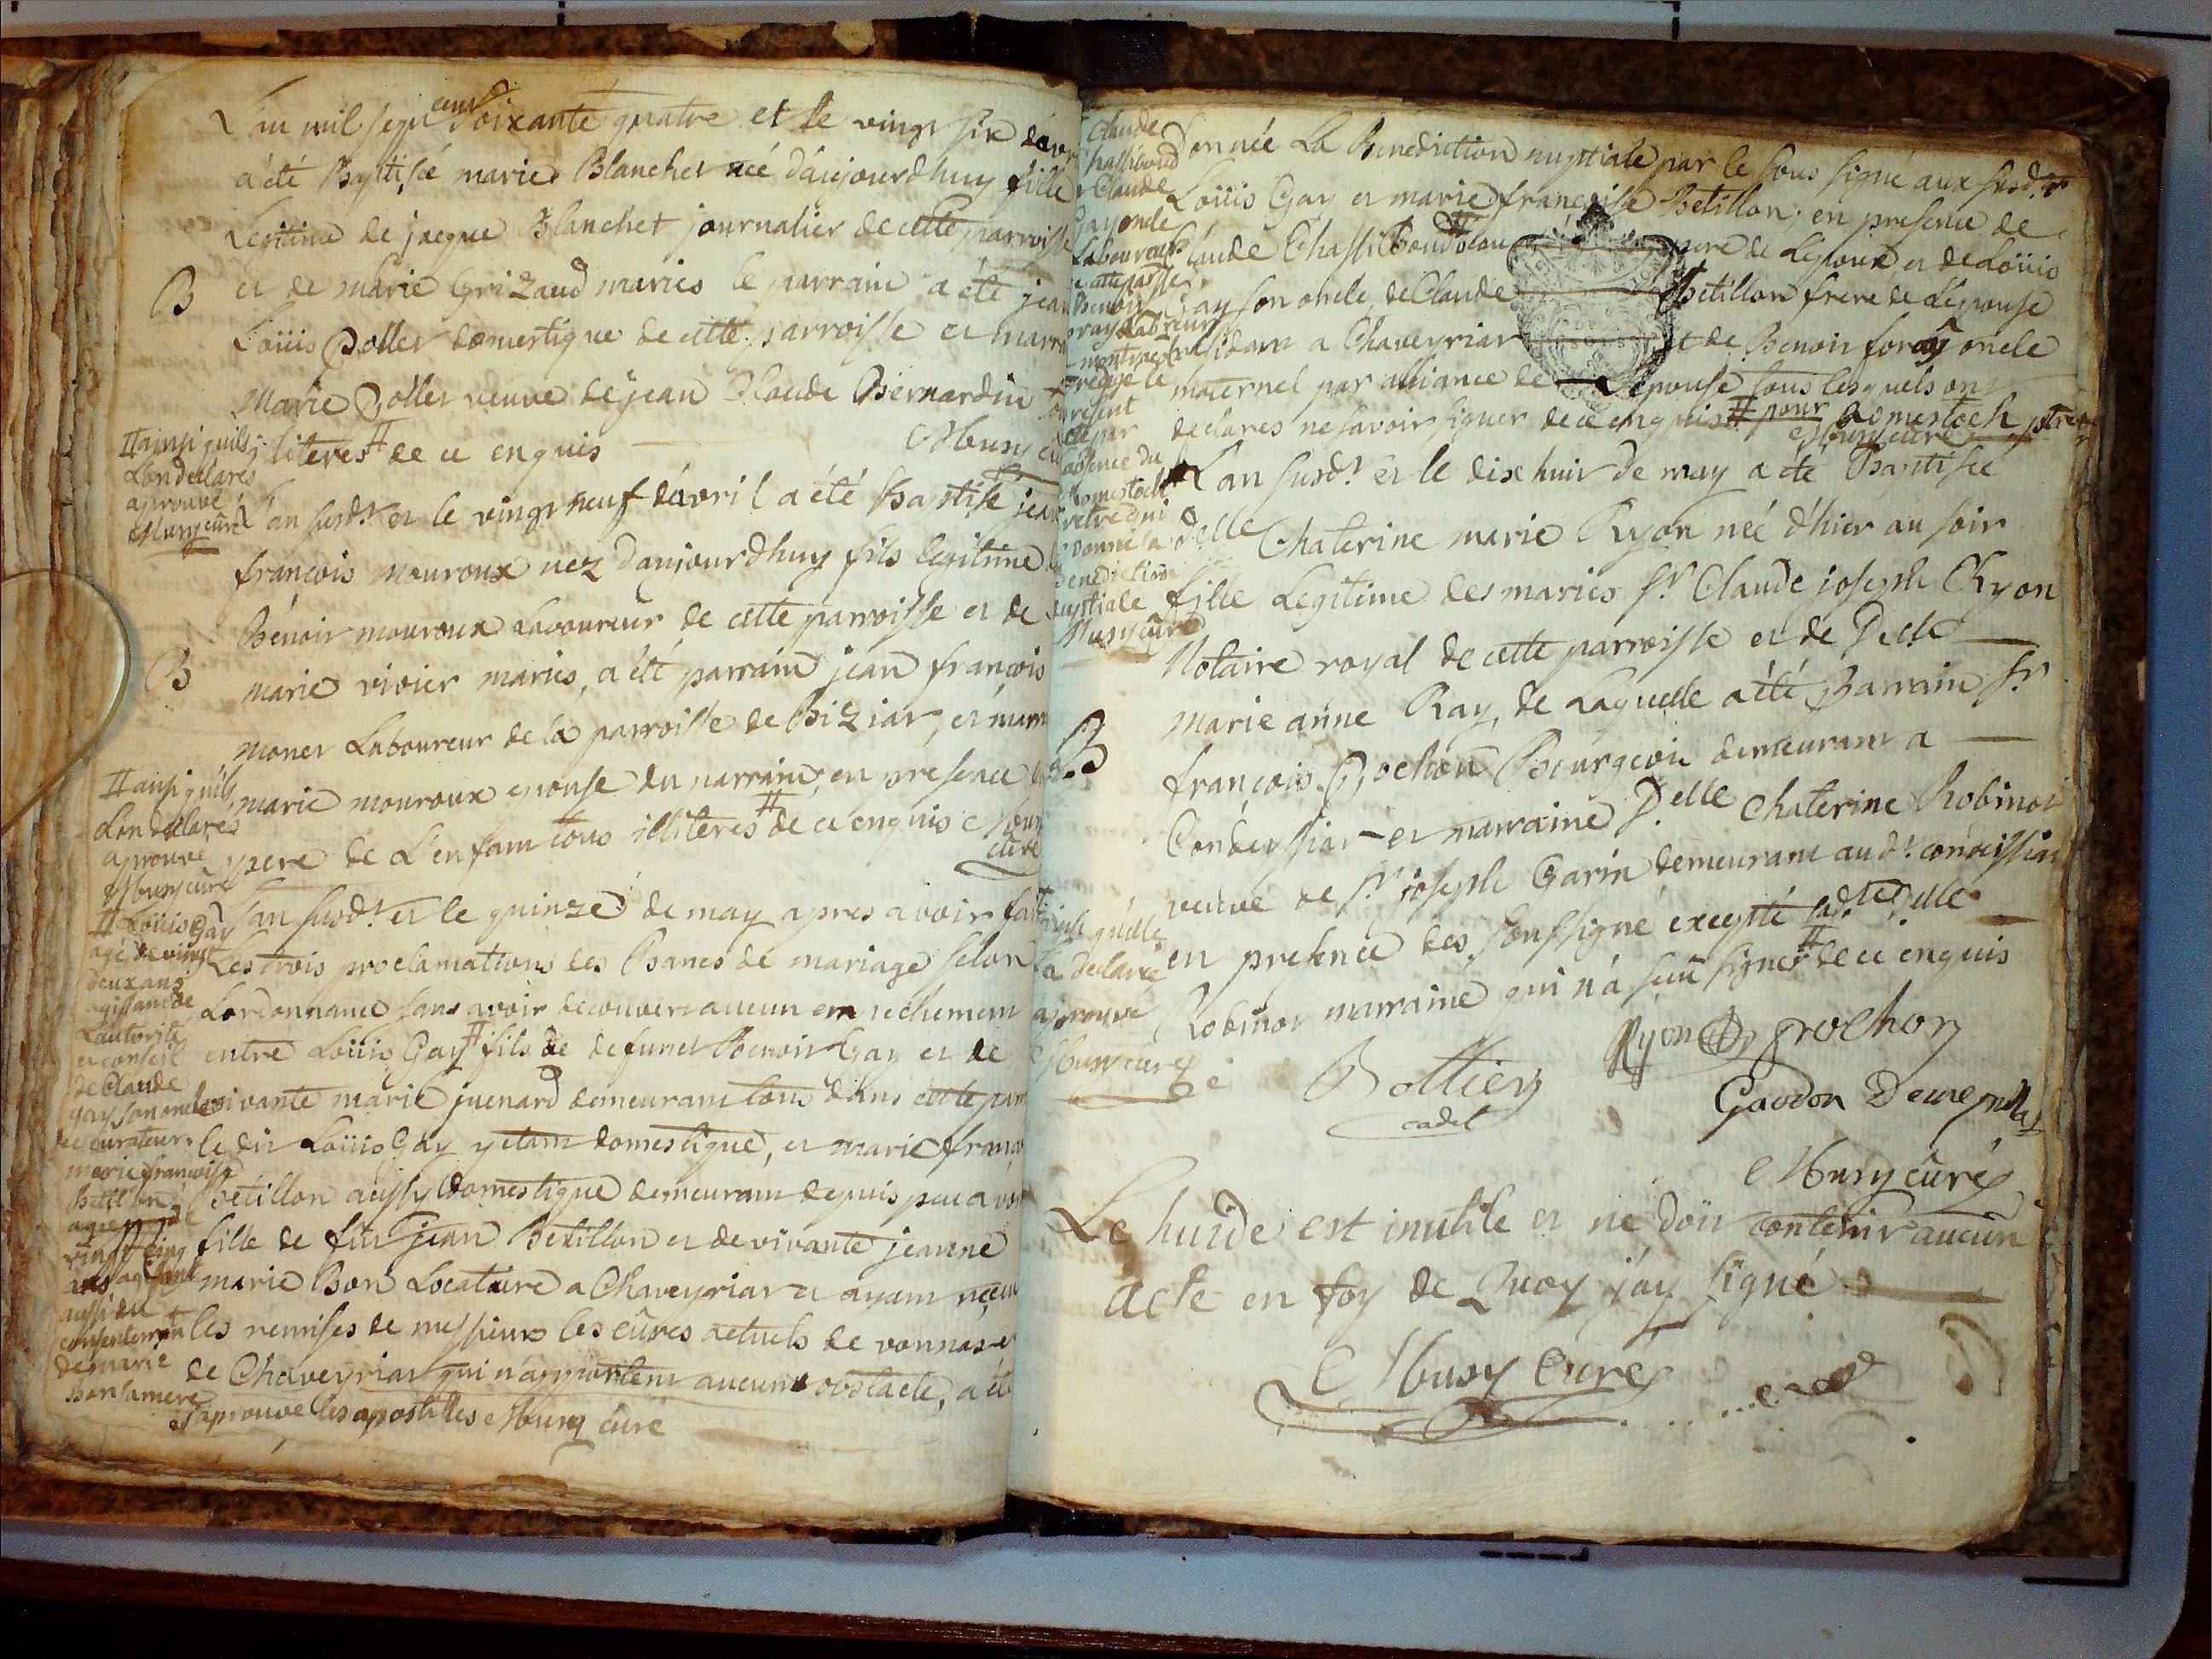 L'an mil sept cent soixante quatre et le vingt six d'avr
a été Baptisée marie Blanchet née d'aujourdhuy fille
Legitime de jacque Blanchet journalier de cette parroisse
B
et de marie Grizaud mariés le parrain a été jean
Loüis Poller domestique de cette parroisse et marr
Marie Poller veuve de jean Claude Bernardin
iliteres # de ce enquis
Musy cu
# ainsi quils
L'on declarés
aprouvé
Musy curé
L'an susd.t et le vingt neuf d'avril a été Baptisé jean
françois mouroux nez d'aujourdhuy fils legitime
Benoit mouroux Laboureur de cette parroisse et de
B
marie vivier mariés, a été parrain jean françois
moner Laboureur de la parroisse de Biziat, et marr
marie mouroux epouse du parrain, en presence
pere de L'enfant tous illiteres # de ce enquis Musy
curé
# ainsi quils
L'on declarés
aprouvé
Musy curé
L'an susd.t et le quinze de may apres avoir fait
Les trois proclamations des Bancs de mariage selon
Lordonnance sans avoir decouvert aucun empechement
entre Loüis Gay # fils de defunct Benoit Gay et de
vivante marie juenard demeurant tous dans cette parr
le dit Loüis Gay y etant domestique, et marie franç
Betillon aussy domestique demeurant depuis peu a von
fille de fut jean Betillon et de vivante jeanne
marie Bon Locataire a Chaveyriat et ayant reçeu
les remises de messieurs les cûrés actuels de vonnas et
de Chaveyriat qui n'apportent aucun obstacle, a été
J'aprouve les apostilles Musy curé
# Loüis Gay
agé de vingt
deux ans
agissant de
L'autorité
et conseil
de Claude
gay son oncle
curateur
marie françoise
Betillon
agée de
vingt cinq
ans agissant
aussi du
consentement
de marie
Bon sa mere
donnée La Benediction nuptiale par le sous signé aux susd.ts
Loüis Gay et marie françoise Betillon; en presence de
Claude Chassiboud # beau pere de L'epoux, et de Loüis
Gay son oncle, de Claude Betillon frere de L'epouse
residant a Chaveyriat et de Benoit foray oncle
maternel par alliance de L'epouse tous lesquels ont
declarés ne savoir signer de ce enquis # pour Domestoch ptre
Musy curé
Claude
Chassiboud
Claude
Gay oncle
Laboureurs
de cette parsse
Benoit
foray Laboureur
montrac
redigé le
present
acte par
L'absence du
Domestoch
pretre qui
a donné la
Benediction
nuptiale
Musy curé
L'an susd.t et le dix huit de may a été Baptisée
D.elle Chaterine marie Ryon née d'hier au soir
fille Legitime des mariés S.r Claude joseph Ryon
Notaire royal de cette parroisse et de D.elle
marie anne Ray, de Laquelle a été Parrain S.r
B
françois Prochon Bourgeois demeurant a
Condeyssiat et marraine D.elle Chaterine Robinot
veuve de S.r joseph Garin demeurant au d.t condeissiat
en presence des soussigné excepté lad.te D.elle
Robinot marraine qui n'a sçeu signer # de ce enquis
# ainsi qu'elle
L'a declarée
aprouvé
Musy curé
Ryon Prochon
Bottier
cadet
Gaodon
Musy cûré
Le huide est inutile et ne doit contenir aucun
acte en foy de Quoy j'ay signé
Musy Curé